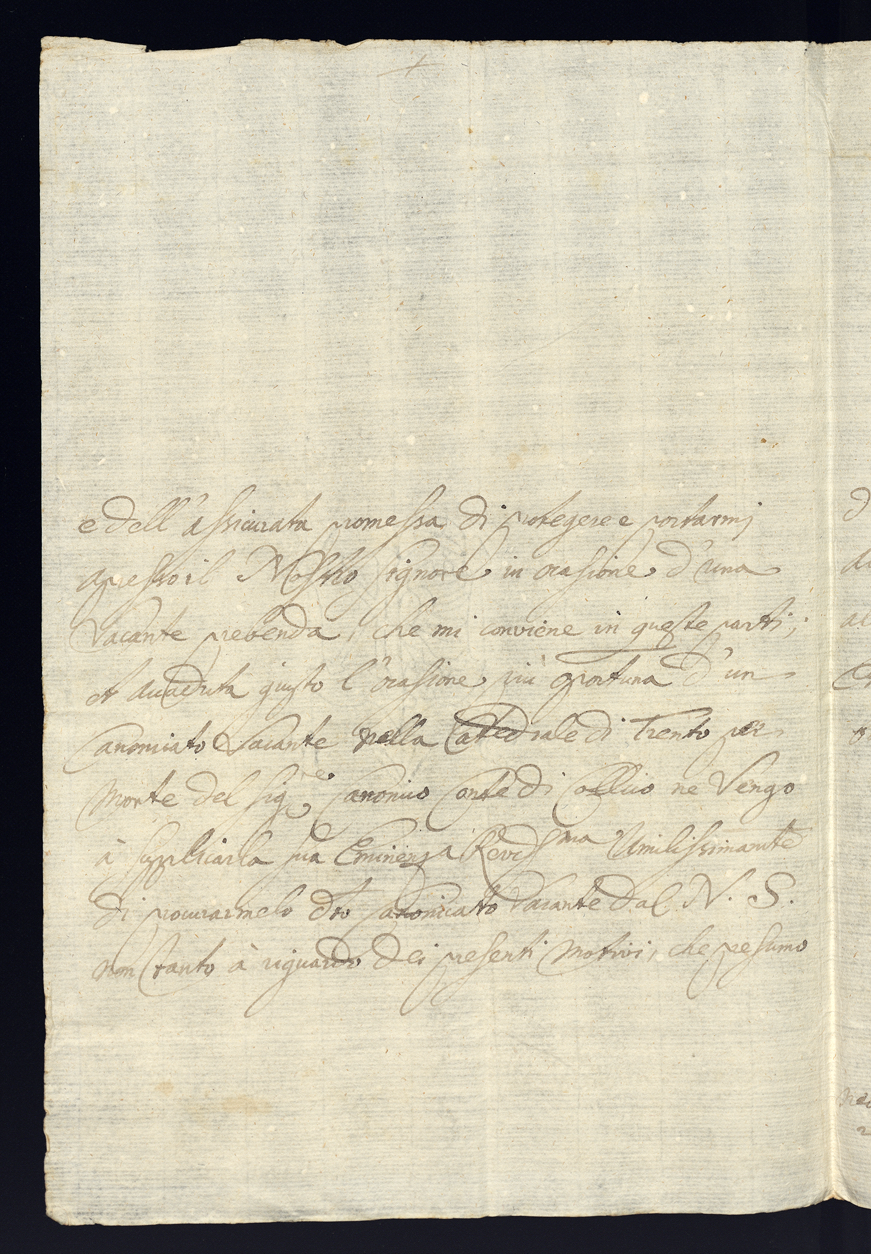 e dell'assicurata promessa di protegere e portarmi
apresso il Nostro Signore in ocasione d'una
vacante prebenda, che mi conviene in queste parti;
et accaduta giusto l'ocasione più oportuna d'un
Canonicato vacante nella Cattedrale di Trento per
morte del Sig.re Canonico Conte di Collico ne vengo
à supplicarla sua Eminenza Revers.ma Umilissimamte
di procurarmelo dto Canonicato vacante dal N. S.
non tanto à riguardo dei presenti motivi, che presumo